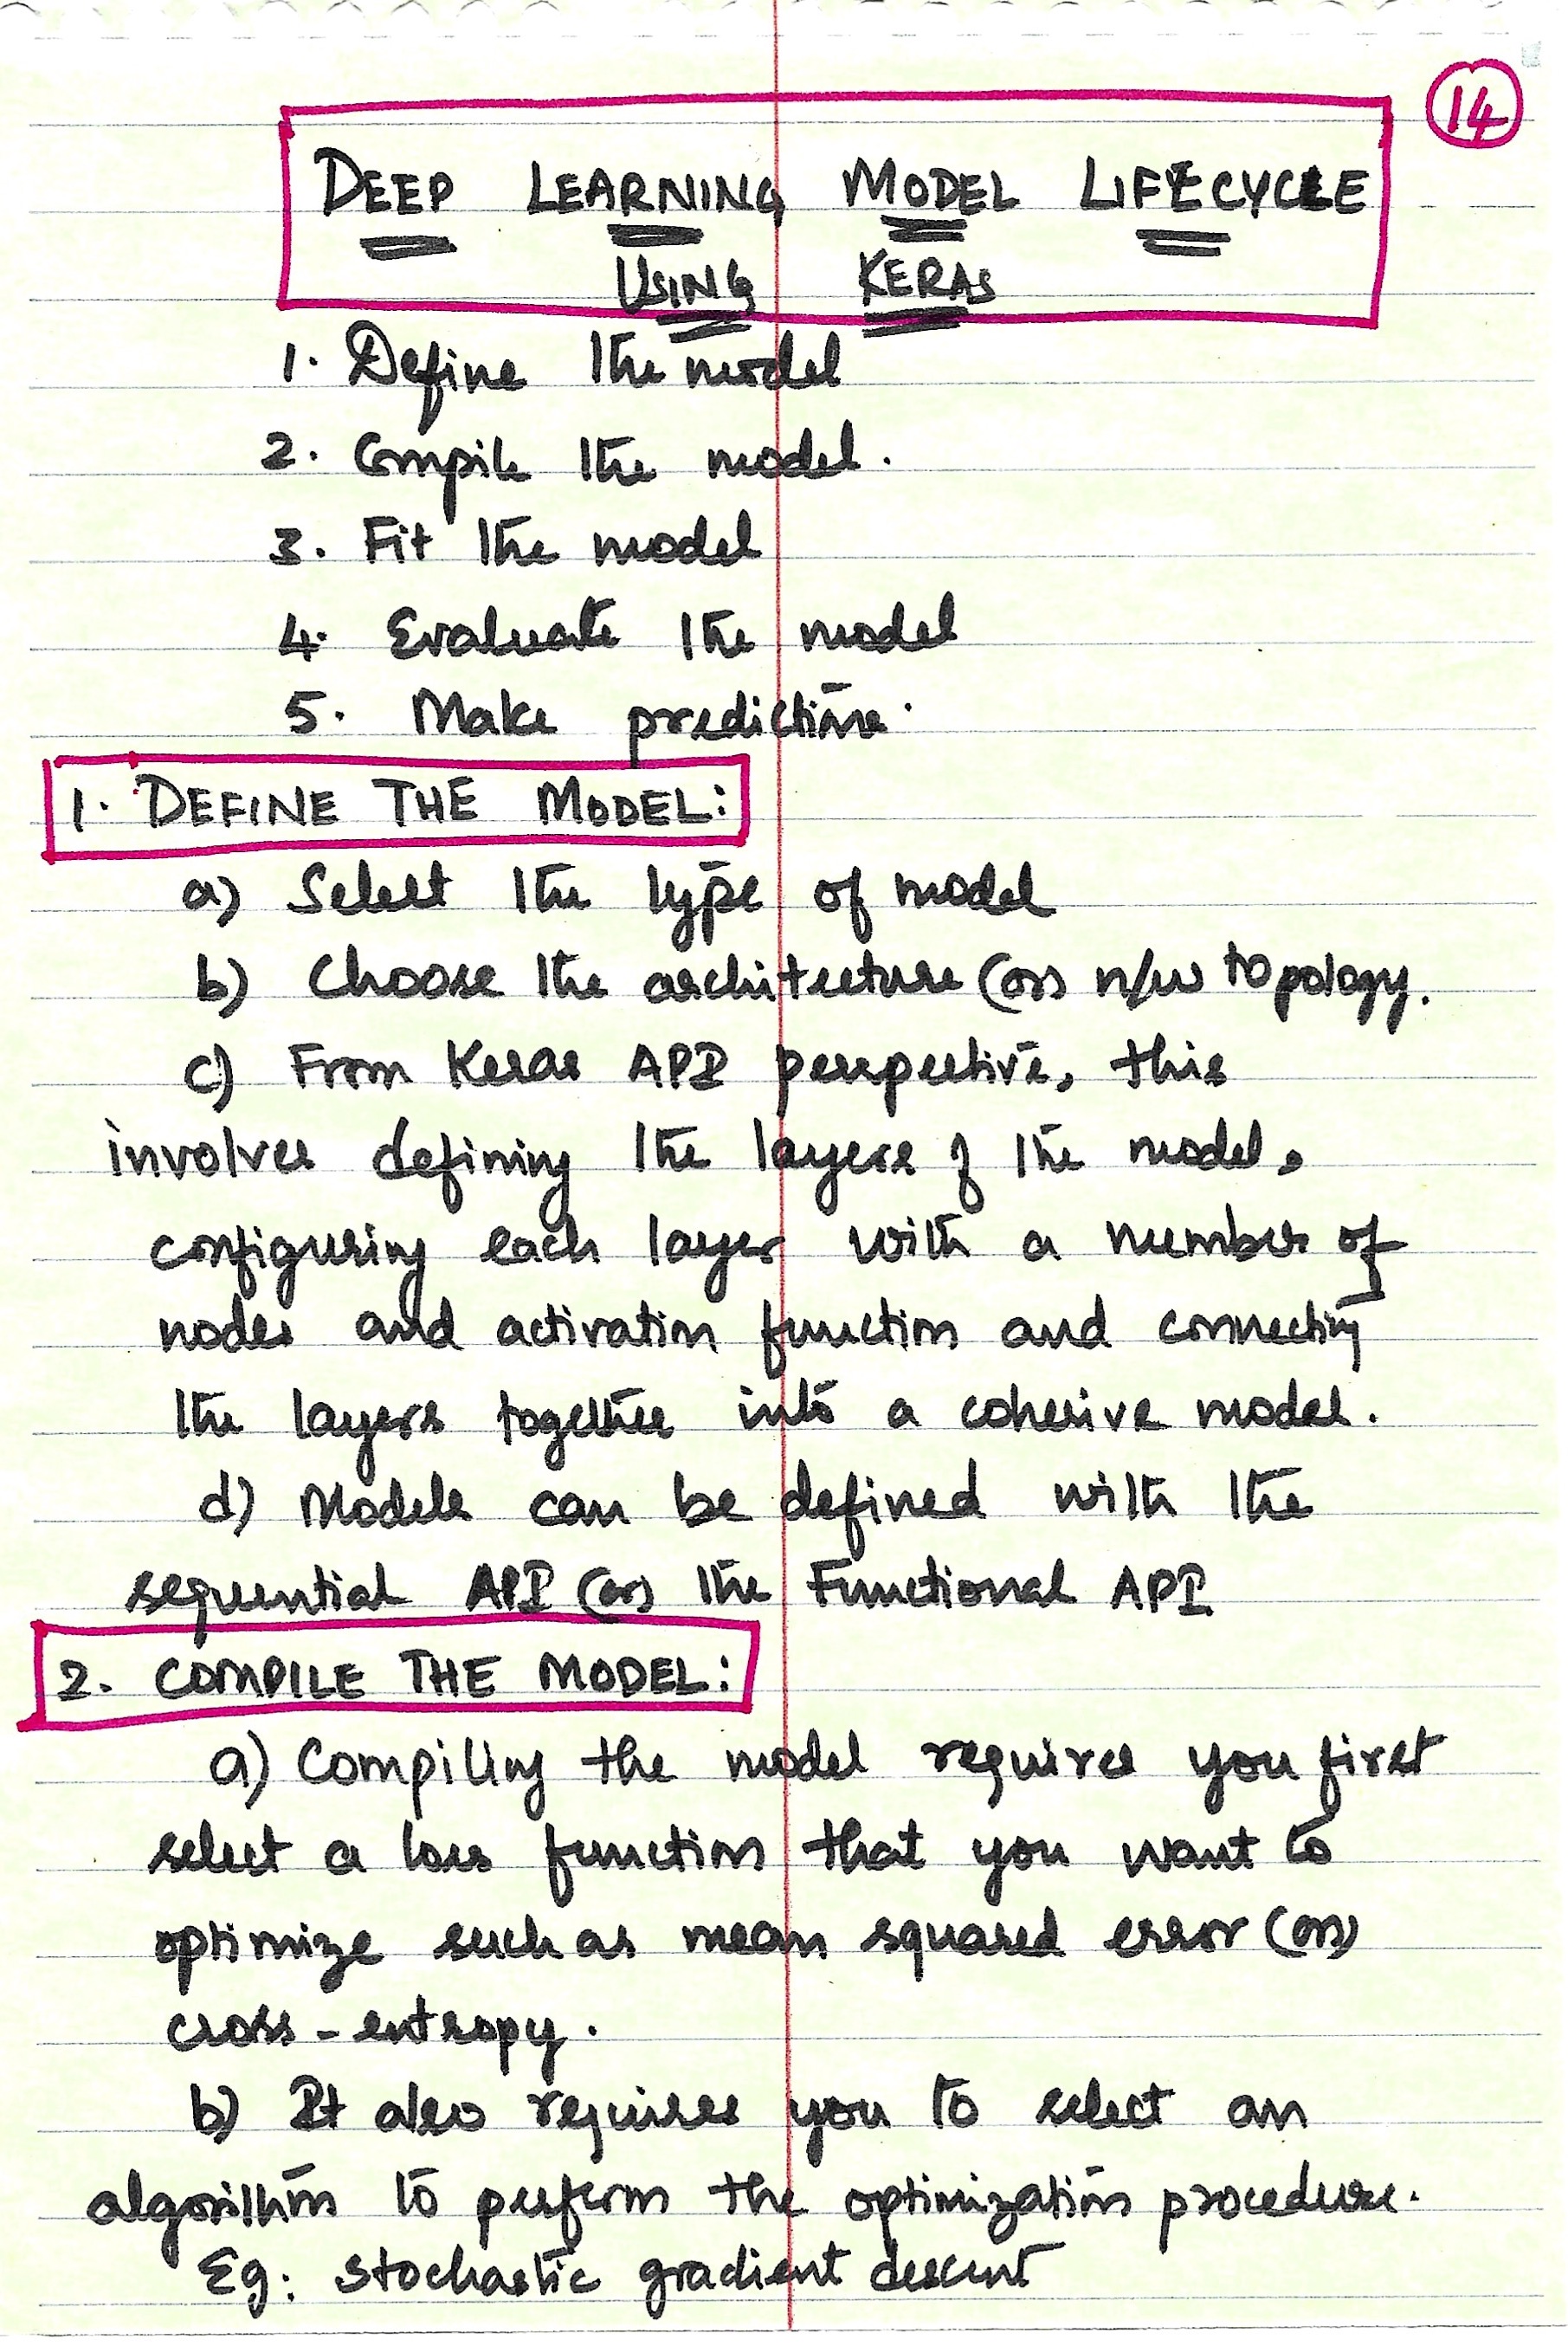 14
DEEP LEARNING MODEL LIFECYCLE
USING KERAS
1. Define the model
2. Compile the model.
3. Fit the model
4. Evaluate the model
5. Make predictions.
1. DEFINE THE MODEL:
a) Select the type of model
b) Choose the architecture (or) n/w topology.
c) From Keras API perspective, this
involves defining the layers of the model,
configuring each layer with a number of
nodes and activation function and connecting
the layers together into a cohesive model.
d) Models can be defined with the
sequential API (or) the Functional API
2. COMPILE THE MODEL:
a) Compiling the model requires you first
select a loss function that you want to
optimize such as mean squared error (or)
cross-entropy.
b) It also requires you to select an
algorithm to perform the optimization procedure.
Eg: stochastic gradient descent